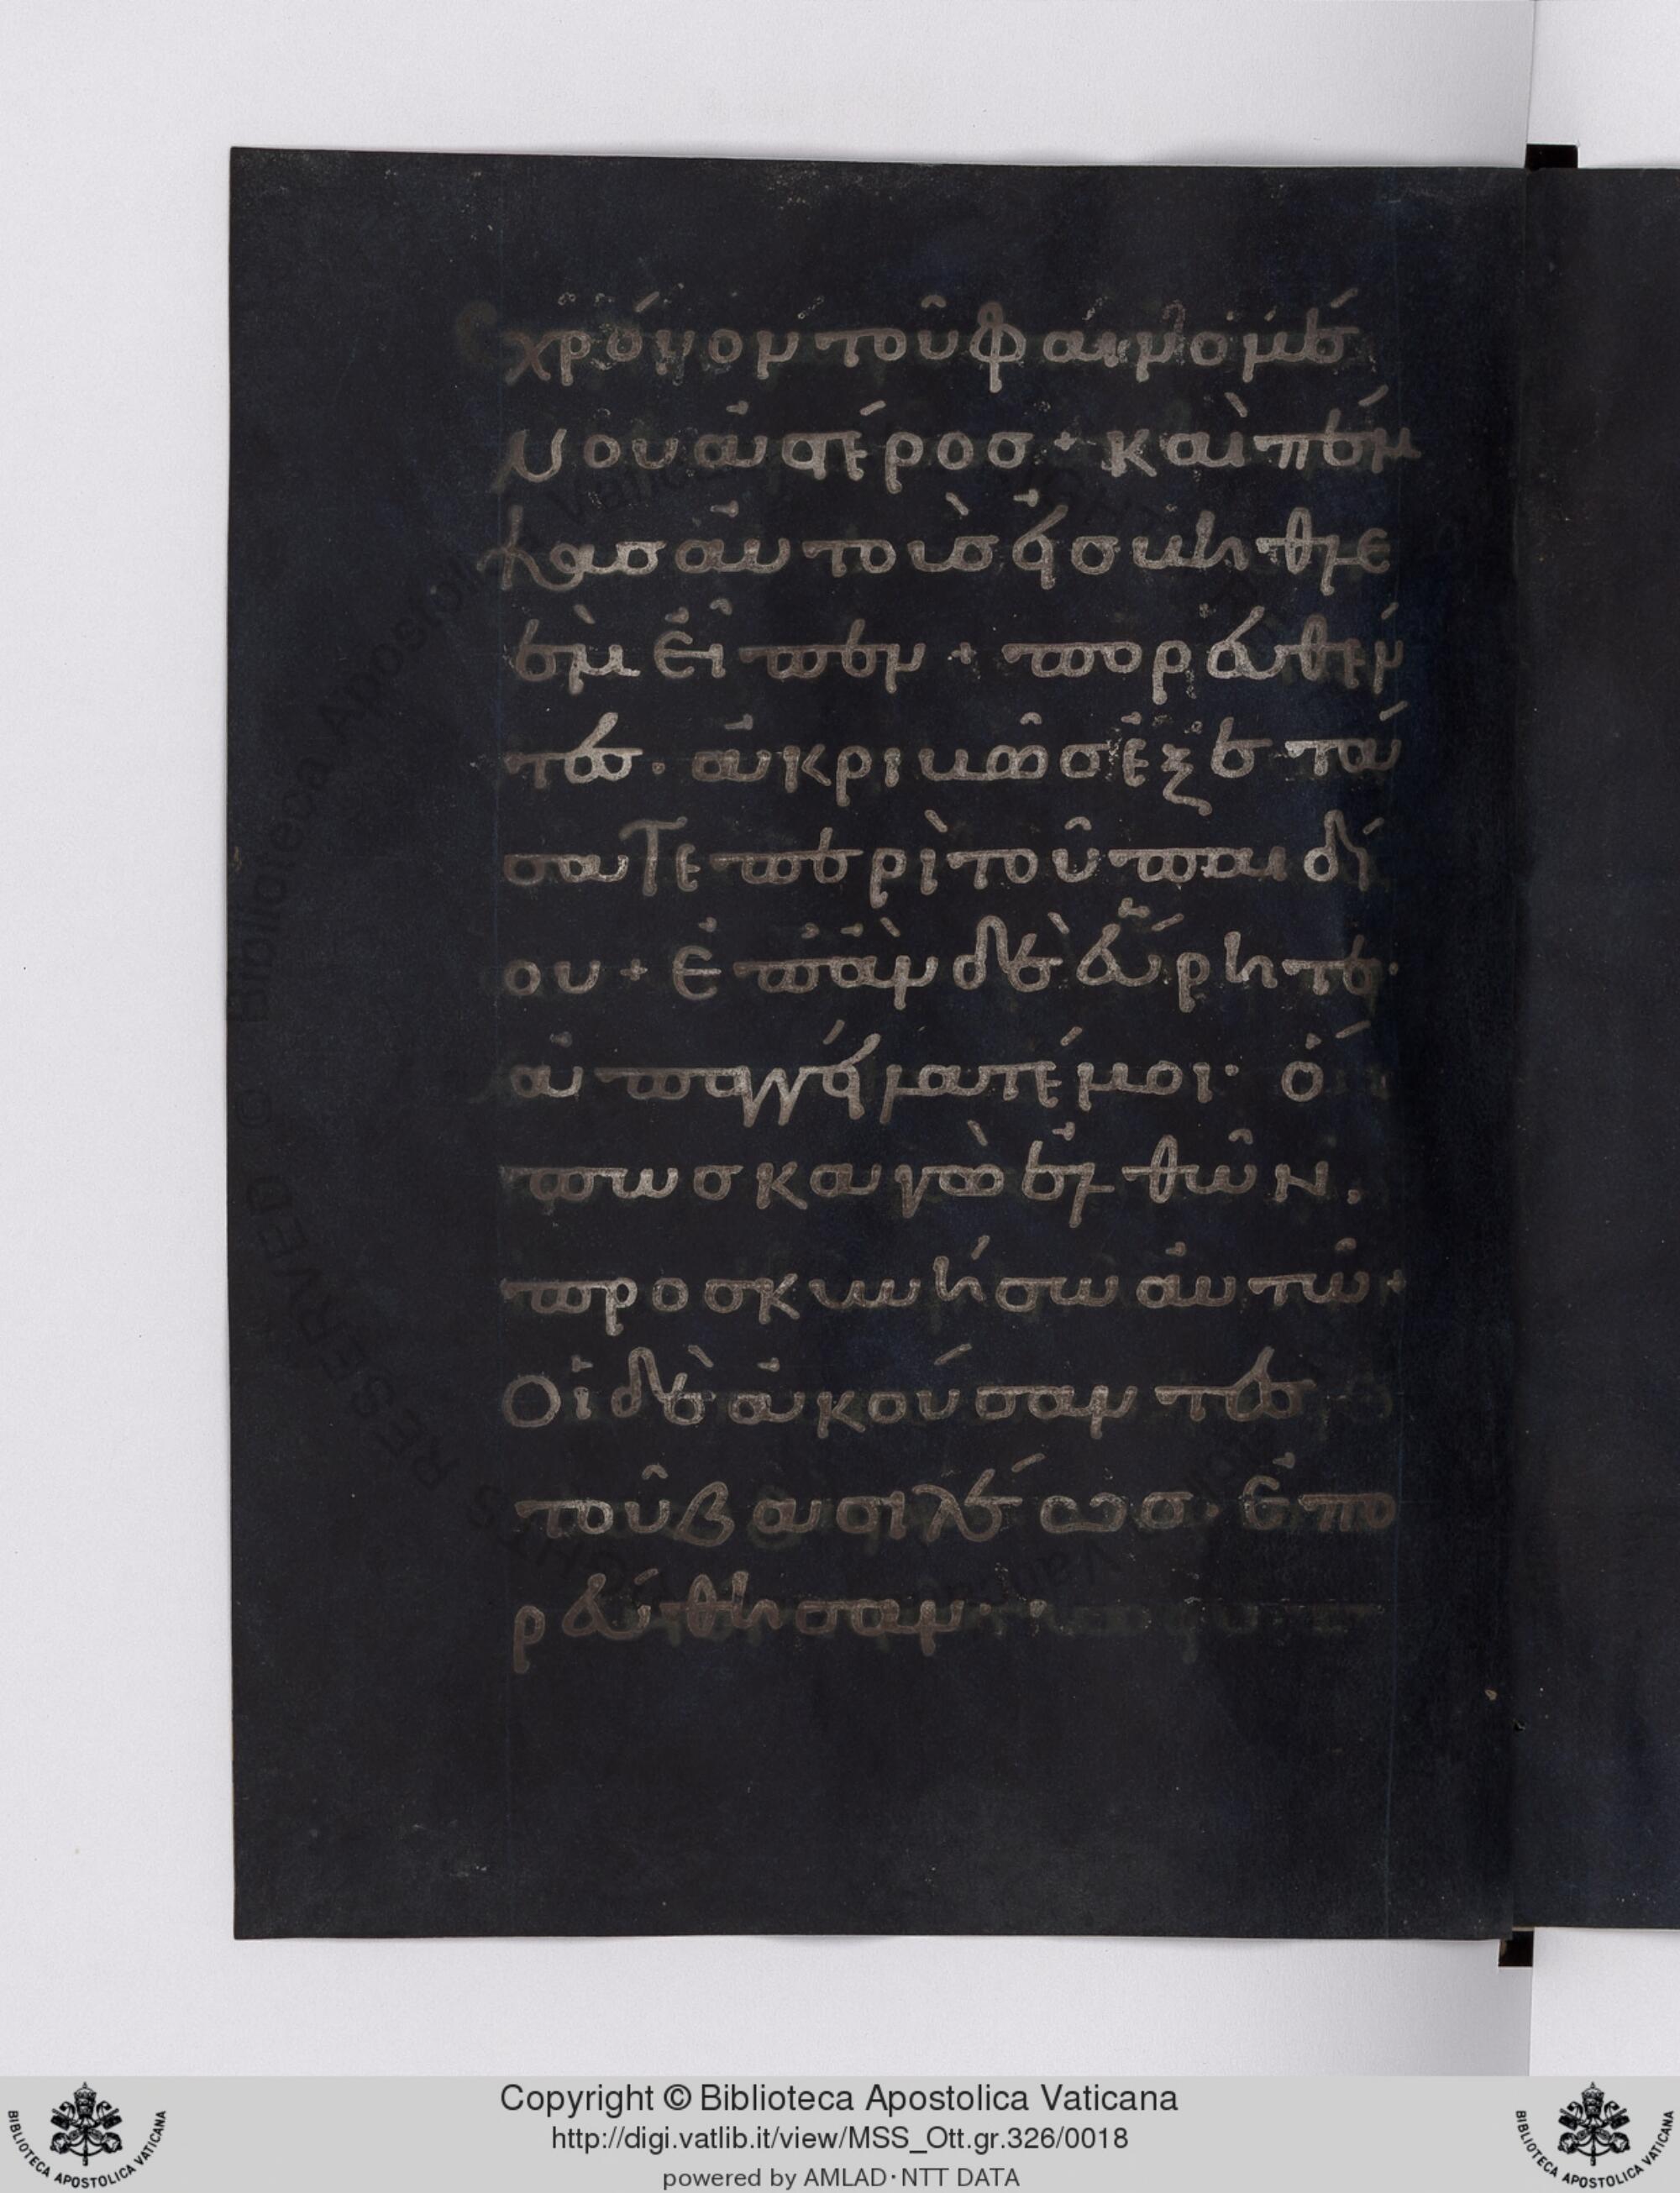 χρόνον τοῦ φαινομέ
νου ἀστέρος + καὶ πέμ
ψας αὐτοὺς εἰς βηθλε
ὲμ εἶπεν + πορευθέν
τες · ἀκριβῶς ἐξετά
σατε περὶ τοῦ παιδί
ου + ἐπὰν δὲ εὕρητε ·
ἀπαγγείλατέ μοι · ὅ
πως κἀγὼ ἐλθὼν .
προσκυνήσω αὐτῶ +
Οἱ δὲ ἀκούσαντες
τοῦ βασιλέως · ἐπο
ρεύθησαν · ·
Copyright © Biblioteca Apostolica Vaticana
http://digi.vatlib.it/view/MSS_Ott.gr.326/0018
powered by AMLAD · NTT DATA
BIBLIOTECA APOSTOLICA VATICANA
BIBLIOTECA APOSTOLICA VATICANA